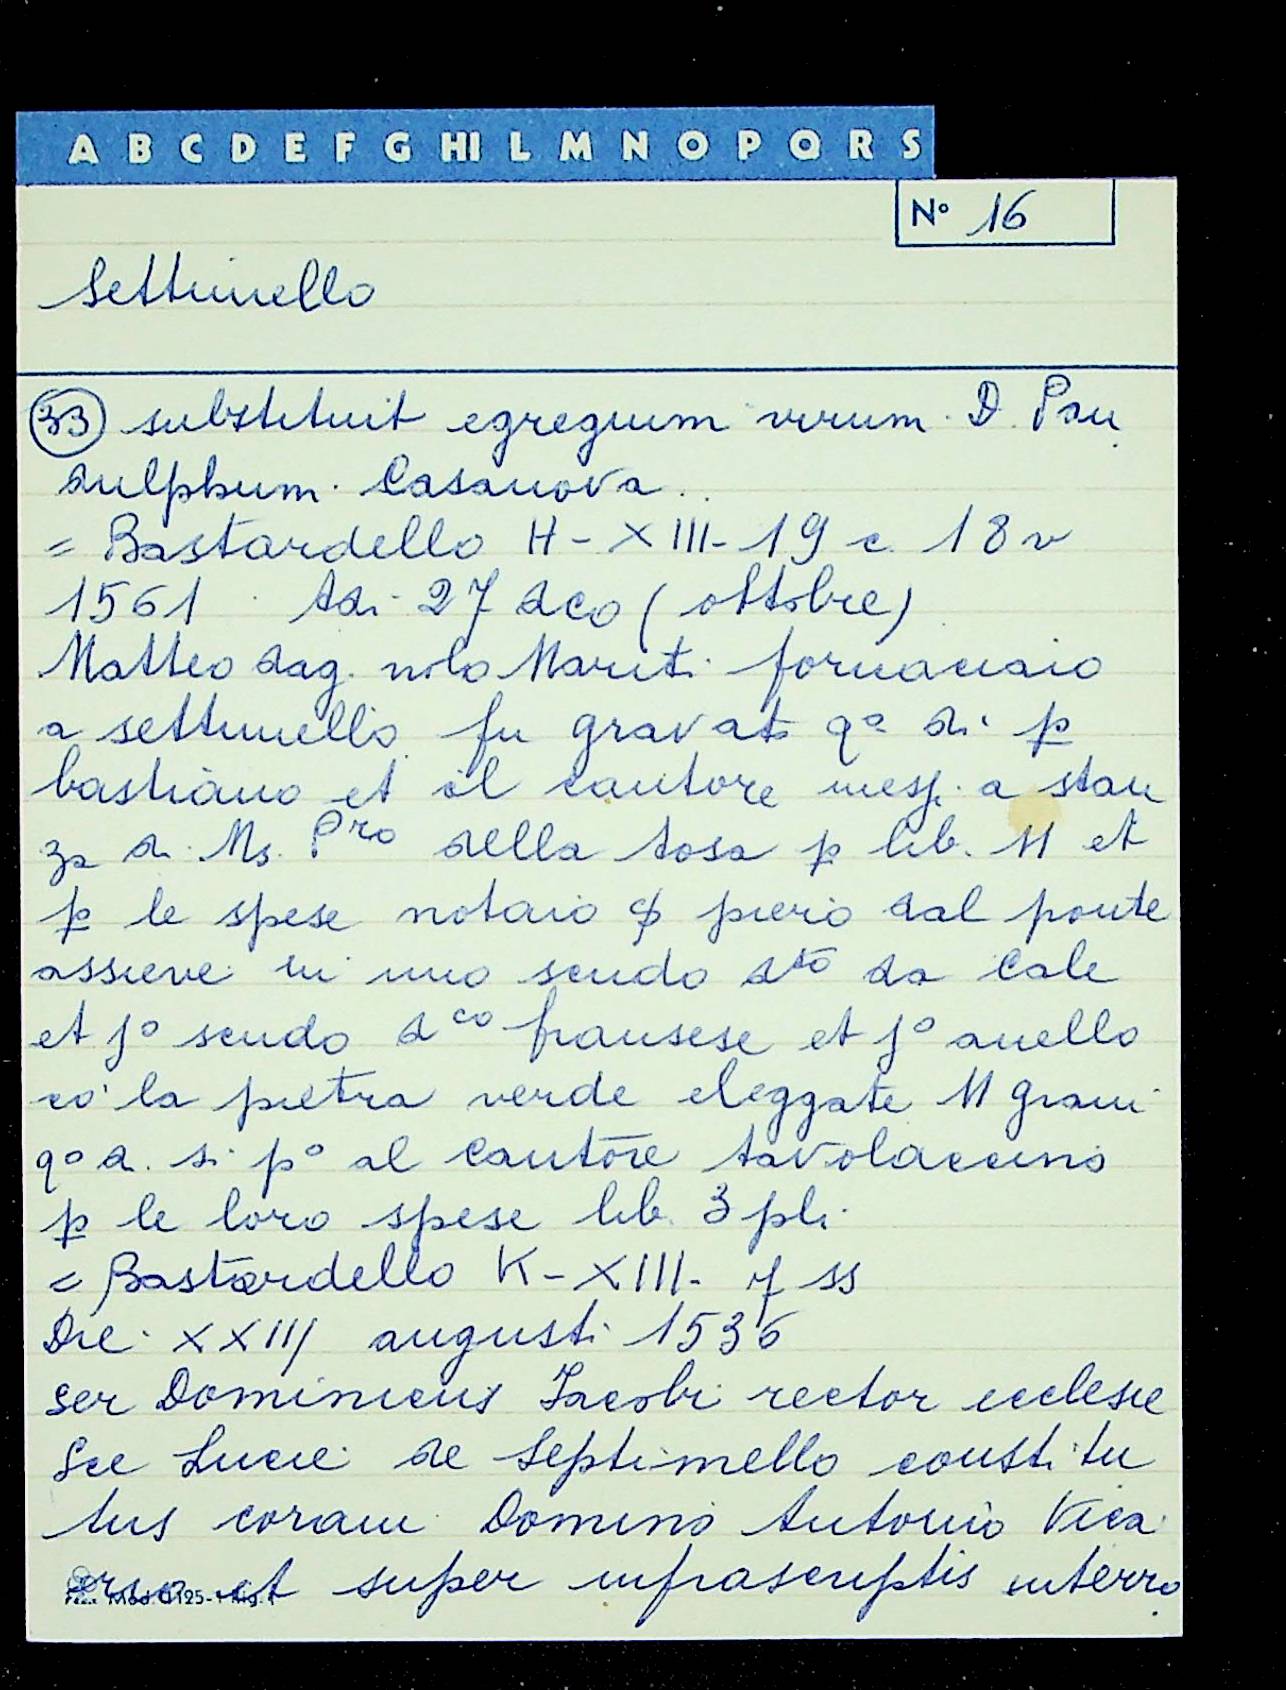 A B C D E F G HI L M N O P Q R S
N° 16
Settimello
33 substituit egregium virum D. Pan
dulphum. Casanova.
= Bastardello H - XIII - 19 c. 18 v
1561 Adi 27 dco (ottobre)
Matteo dag. nolo Mariti fornaciaio
a settimello fu gravato qo di p
bastiano et il cautore mesf. a stan
za di Ms. Pro della tosa p lib. 11 et
p le spese notaio piero dal ponte
assieve in uno scudo dto da Cale
et jo scudo dco fransese et jo anello
co' la pietra verde eleggate 11 grani
qo d. si po al cautōre tavolaccino
p le loro spese lib. 3 pli.
= Bastardello K - XIII - 7 ss
Die XXIII augusti 1536
ser Dominicus Jacobi rector ecclesie
Sce Lucie de Septimello constitu
tus coram Domino Antonio Vica
rio et super infrascriptis interro
Mod. 0125-1 Rig. 1